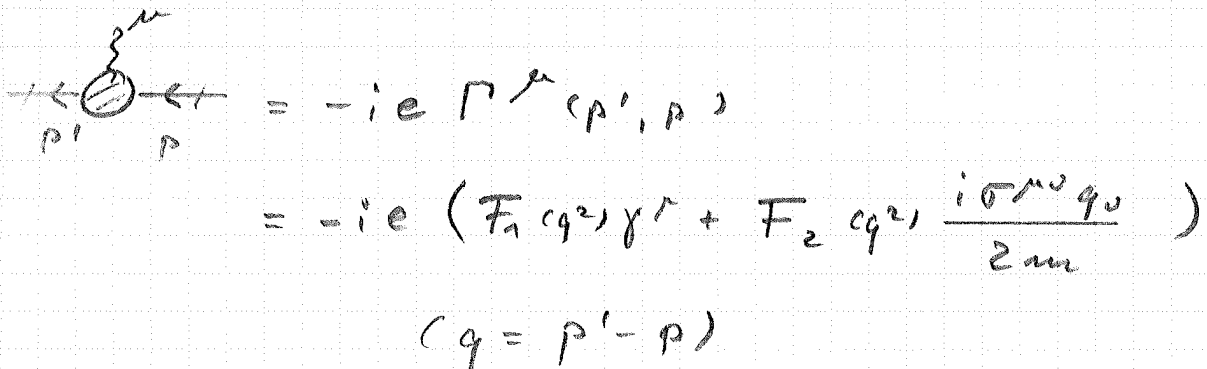 μ
p' p = -ie Γ^μ (p', p)
= -ie (F₁(q²) γ^μ + F₂(q²) \frac{iσ^{μν} q_ν}{2m})
(q = p' - p)